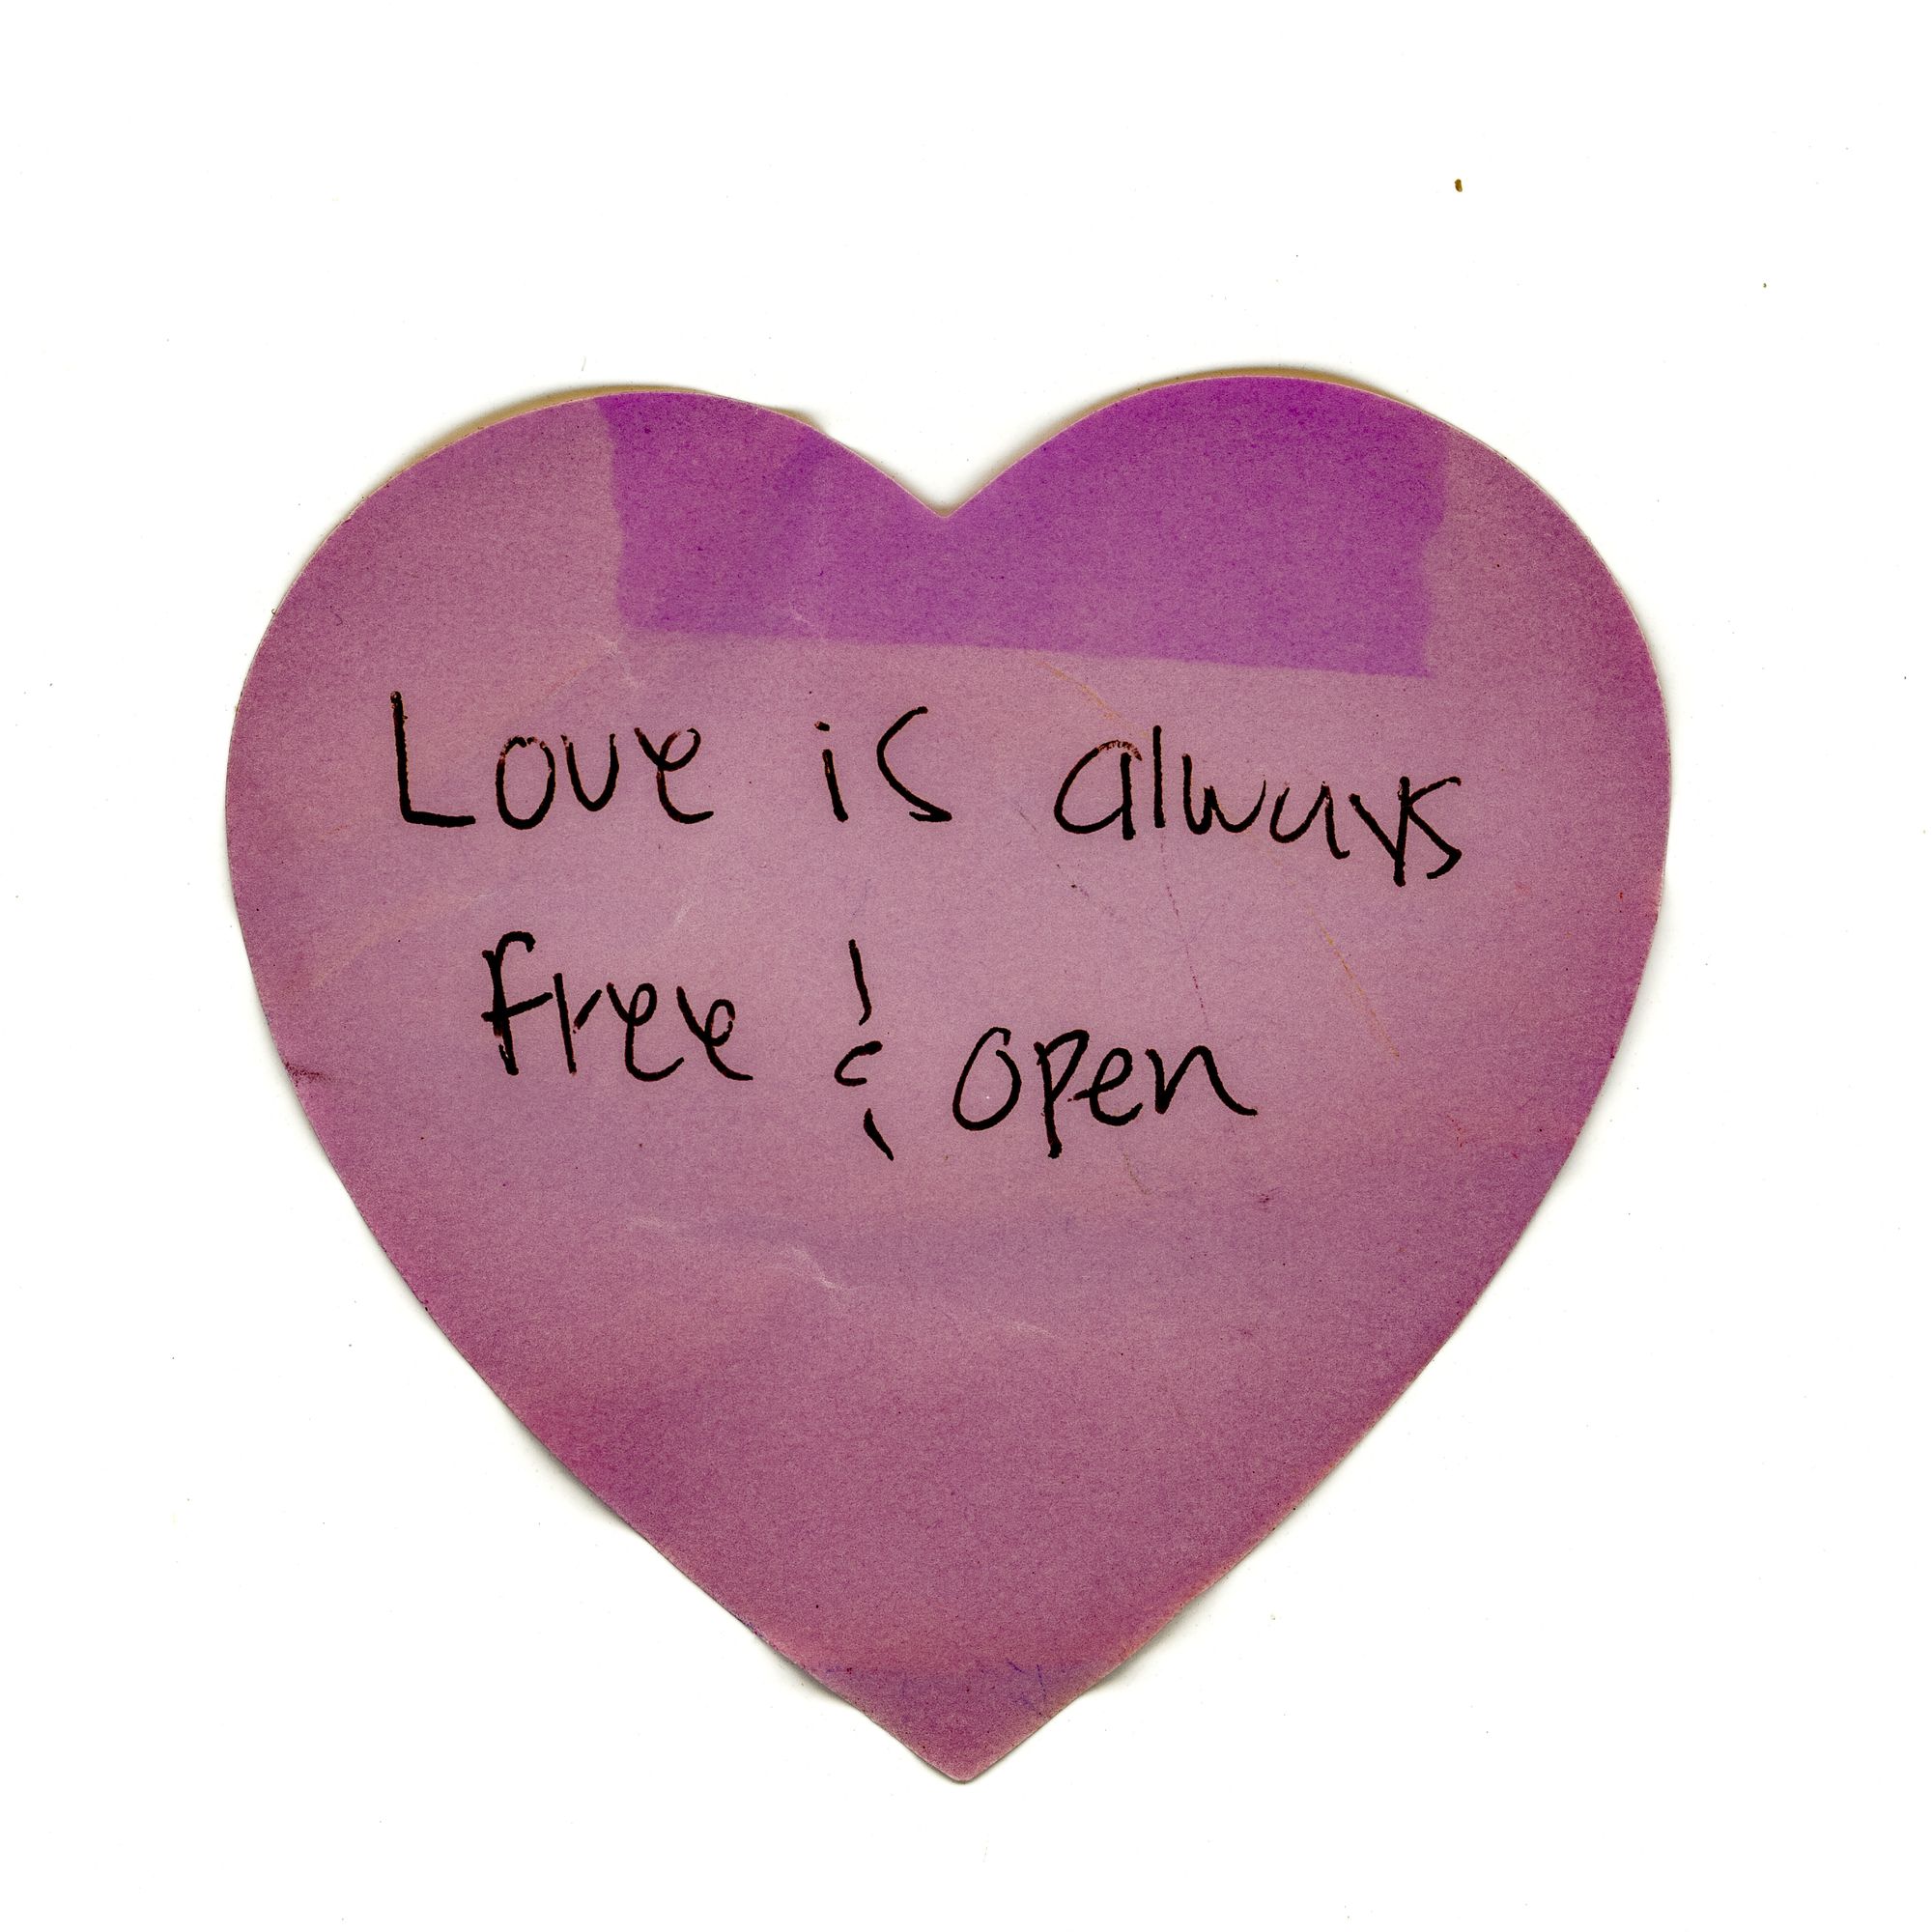 Love is always
free & open